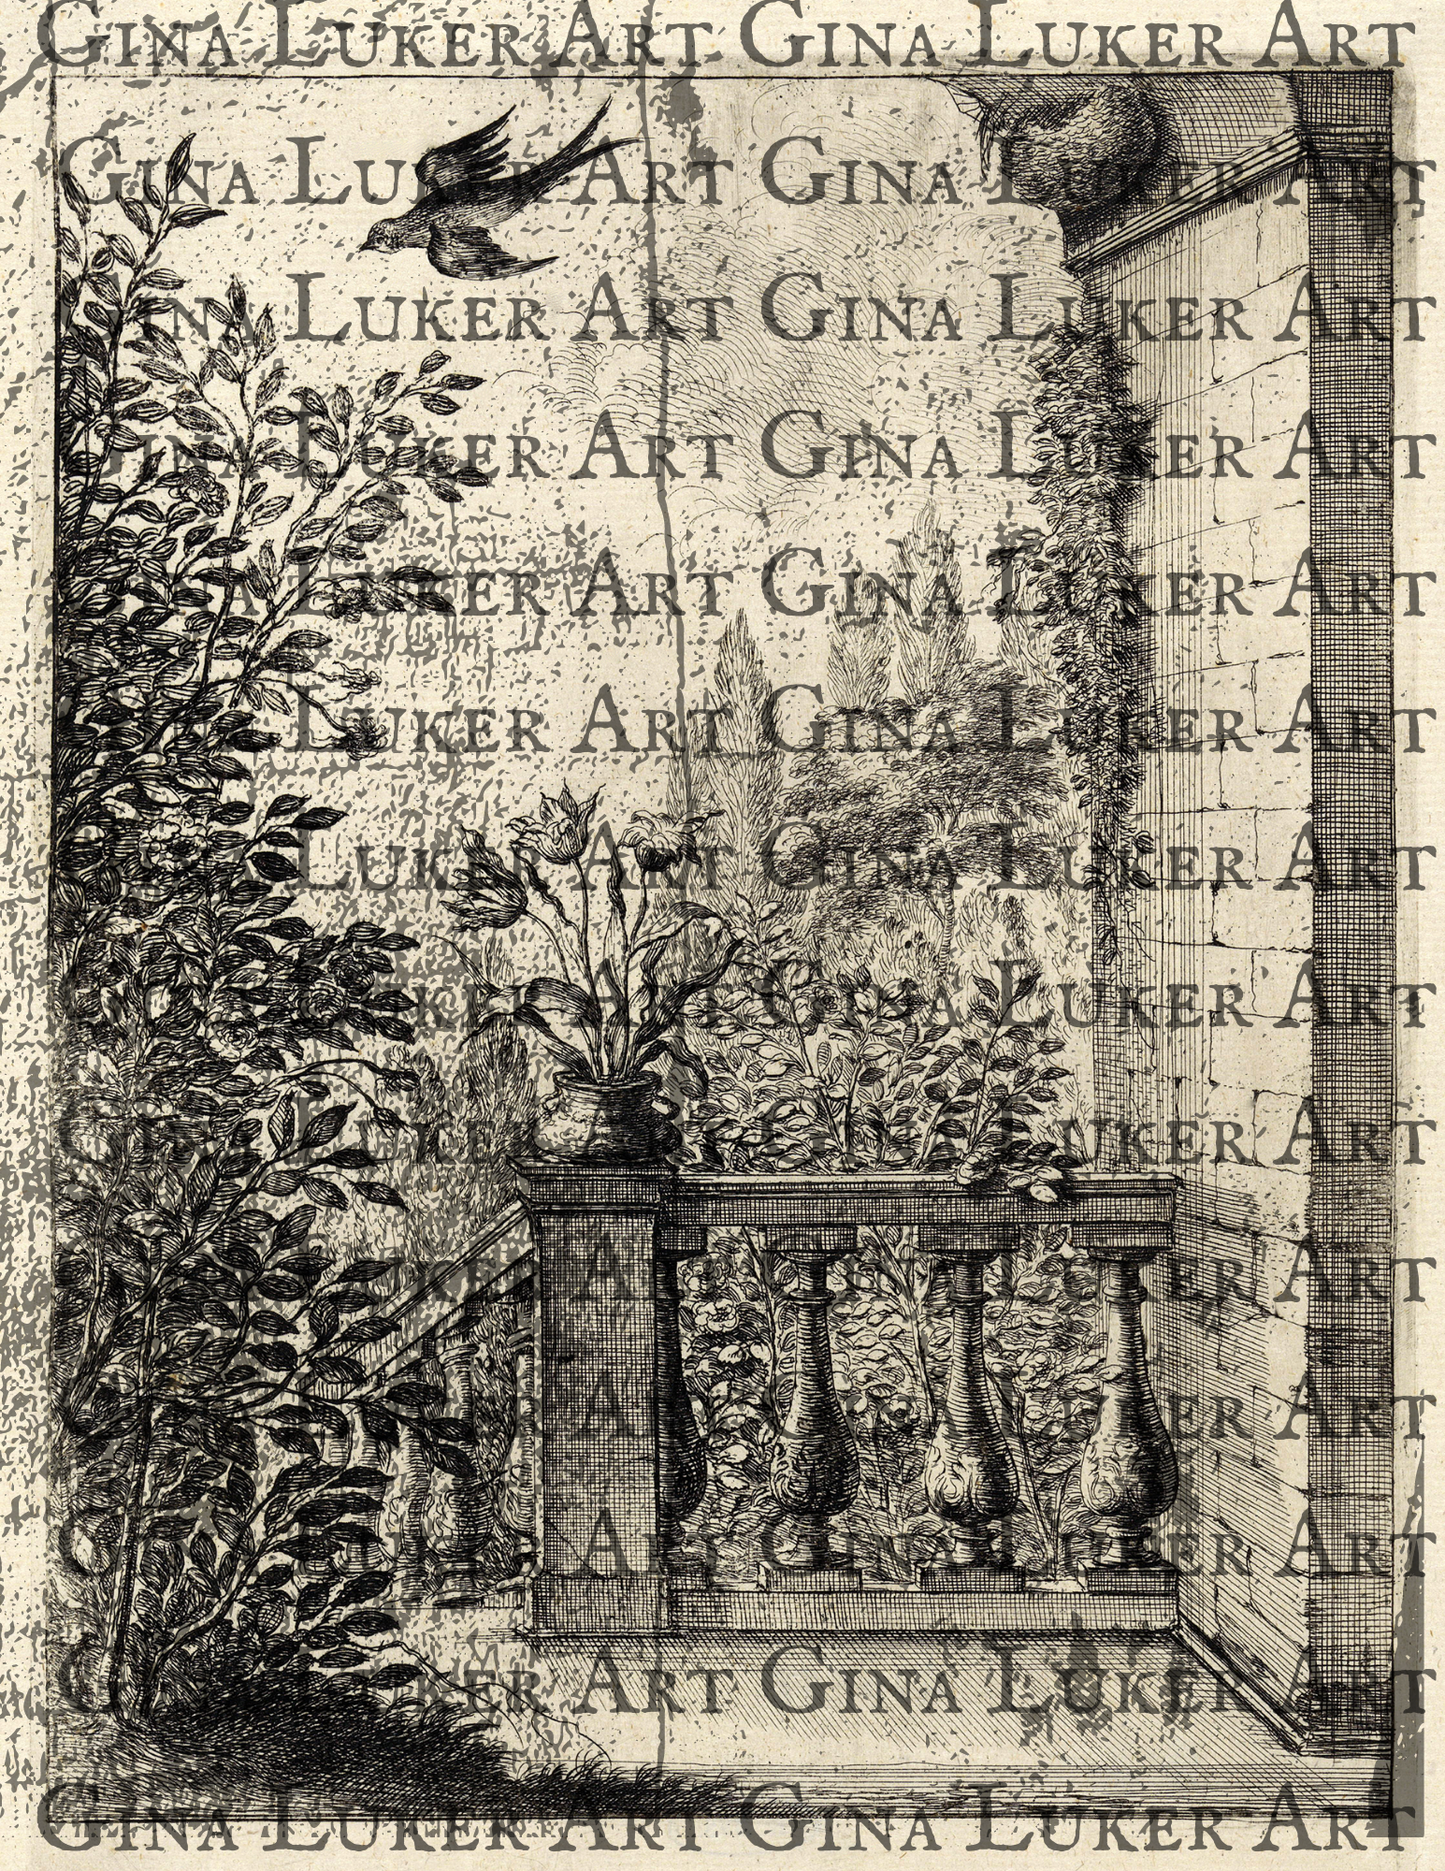 Gina Luker Art Gina Luker Art
Gina Luker Art Gina Luker Art
Gina Luker Art Gina Luker Art
Gina Luker Art Gina Luker Art
Gina Luker Art Gina Luker Art
Gina Luker Art Gina Luker Art
Gina Luker Art Gina Luker Art
Gina Luker Art Gina Luker Art
Gina Luker Art Gina Luker Art
Gina Luker Art Gina Luker Art
Gina Luker Art Gina Luker Art
Gina Luker Art Gina Luker Art
Gina Luker Art Gina Luker Art
Gina Luker Art Gina Luker Art